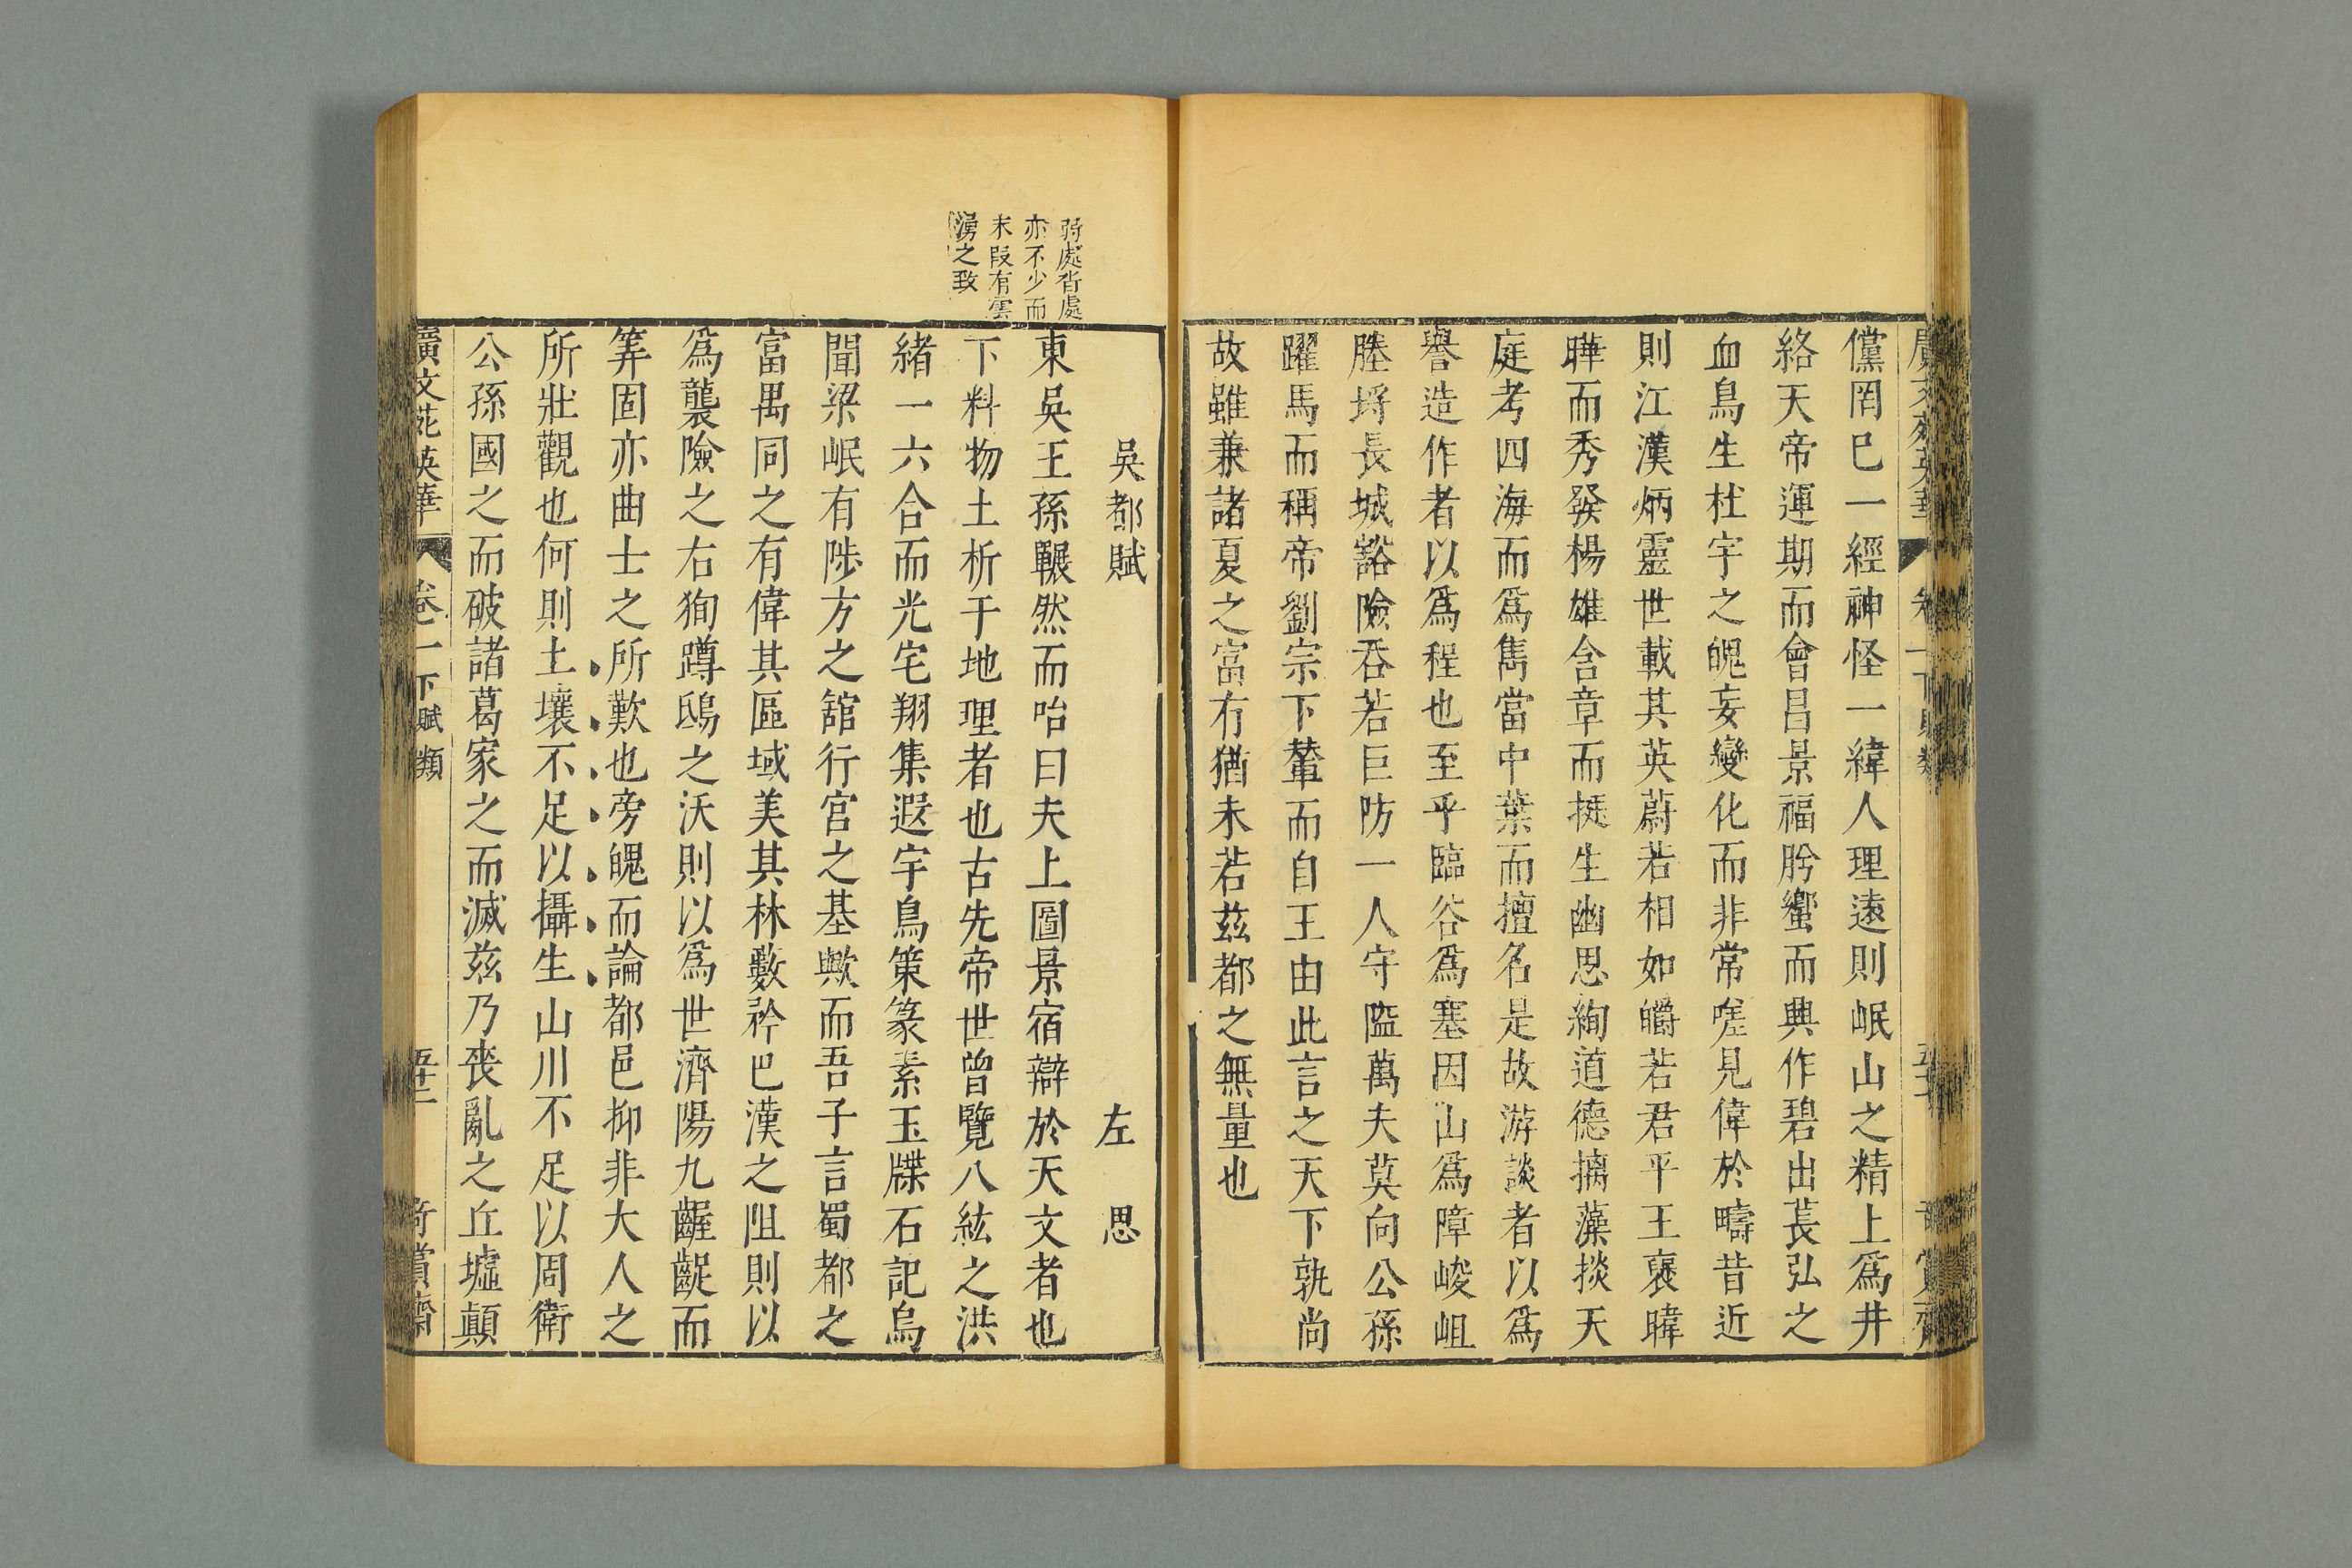 儻罔巳一經神怪一緯人理遠則岷山之精上爲井
絡天帝運期而會昌景福肹蠁而興作碧出萇弘之
血鳥生杜宇之魄妄變化而非常嗟見偉於疇昔近
則江漢炳靈世載其英蔚若相如皭若君平王褒暐
曄而秀發楊雄含章而挺生幽思絢道德摛藻掞天
庭考四海而爲雋當中葉而擅名是故游談者以爲
譽造作者以爲程也至乎臨谷爲塞因山爲障峻岨
塍埒長城豁險吞若巨防一人守隘萬夫莫向公孫
躍馬而稱帝劉宗下輦而自王由此言之天下孰尚
故雖兼諸夏之富冇猶未若茲都之無量也
弱處呰處
亦不少而
末段有雲
湧之致
吳都賦
左思
東吳王孫囅然而咍曰夫上圖景宿辯於天文者也
下料物土析于地理者也古先帝世曾覽八紘之洪
緒一六合而光宅翔集遐宇鳥策篆素玉牒石記烏
聞梁岷有陟方之舘行宮之基歟而吾子言蜀都之
富禺同之有偉其區域美其林藪矜巴漢之阻則以
爲襲險之右狥蹲鴟之沃則以爲世濟陽九齷齪而
筭固亦曲士之所歎也旁魄而論都邑抑非大人之
所壯觀也何則土壤不足以攝生山川不足以周衛
公孫國之而破諸葛家之而滅茲乃喪亂之丘墟顛
廣文苑英華 卷一下賦類 五十二 奇賞齋